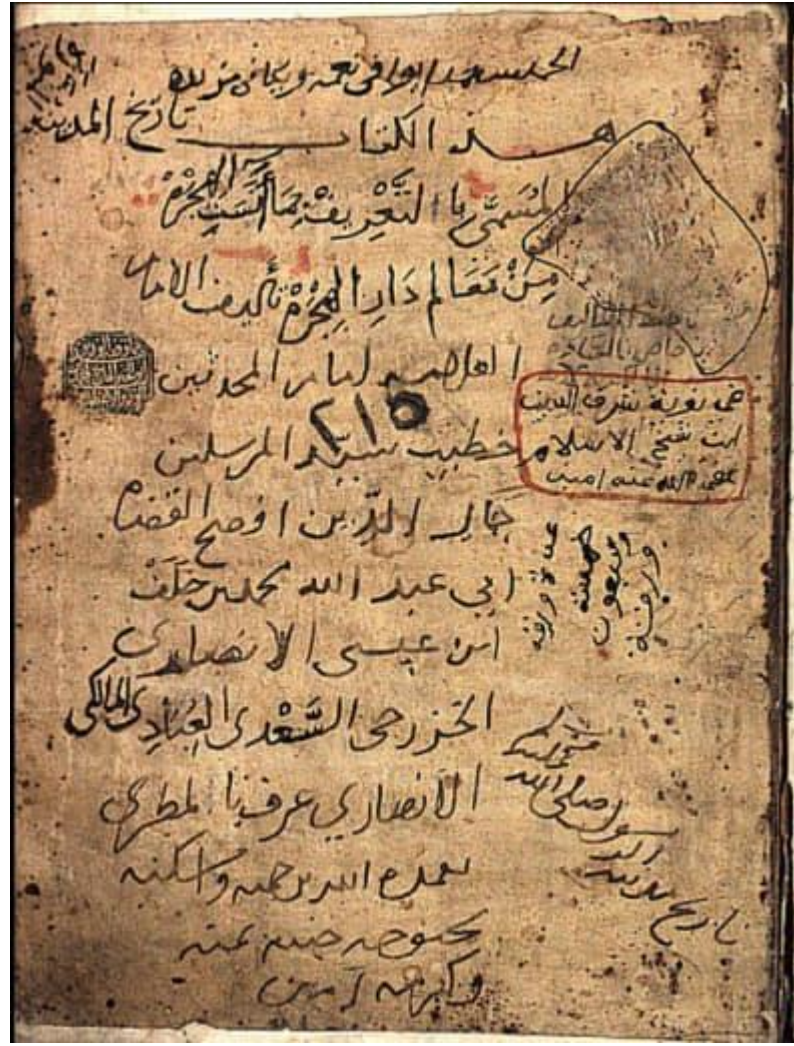 الحمد لله حمدا يوافي نعمه ويكافئ مزيده
تاريخ المدينة
هذا الكتاب
المسمى بالتعريف بما أنست الهجرة
من معالم دار الهجرة تأليف الامام
العلامة لسان المحدثين
٢١٥
خطيب سيد المرسلين
جمال الدين اوضح القضاة
ابي عبد الله محمد بن خلف
ابن عيسى الانصاري
الخزرجي السعدي العبادي المالكي
الانصاري عرف بالمطري
تغمده الله برحمته واسكنه
بحبوحة جنته بمنه
وكرمه آمين
في نوبة شرف الدين
ابن شيخ الاسلام
عفى الله عنه امين
عدة ورقه
خمسة
واربعون
ورقة
تاريخ مدينة
الرسول صلى الله
عليه وسلم